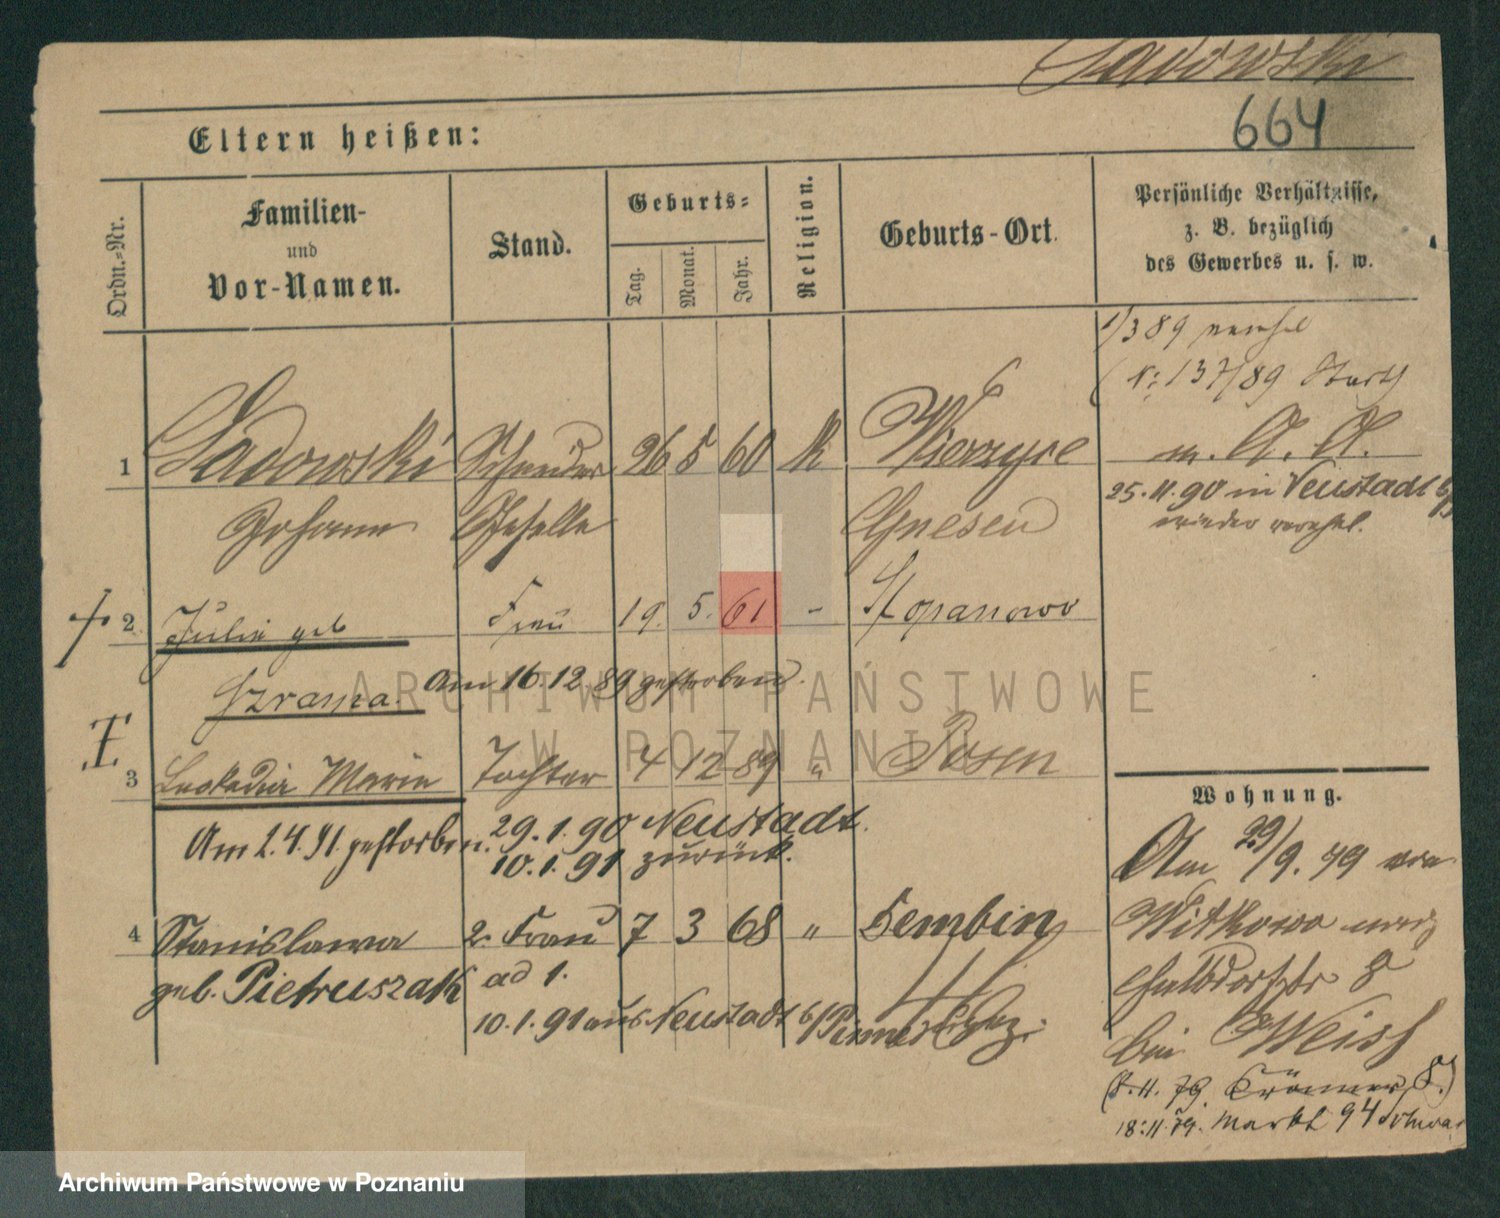 Ladowski
664
Eltern heißen:
Ordn.-Nr.
Familien-
und
Vor-Namen.
Stand.
Geburts-
Tag.
Monat.
Jahr.
Religion.
Geburts-Ort.
Persönliche Verhältnisse,
z. B. bezüglich
des Gewerbes u. s. w.
1/3 89 verehel
(N: 137/89
1 Ladowski Schneider 26 5 60 k
Johann Geselle Gnesen
m. A. A.
25.11.90 in Neustadt b/P
wieder verehel.
2 Julie geb Frau 19. 5. 61 - Stopanowo
Szrama. Am 16.12 89 gestorben.
3 Leokadia Maria Tochter 4 12 89 " Posen
Am 2.4.91 gestorben. 29.1.90 Neustadt.
10.1.91 zurück.
4 Stanislawa 2. Frau 7 3 68 " Dembin
geb. Pietruszak ad 1.
10.1.91 aus Neustadt b/Pinne
Wohnung.
Am 29/9. 79 von
Witkowo
8
bei Weiss
(8.11.79. Krämer 8.)
18.11.79. Markt 94
ARCHIWUM PAŃSTWOWE
W POZNANIU
Archiwum Państwowe w Poznaniu